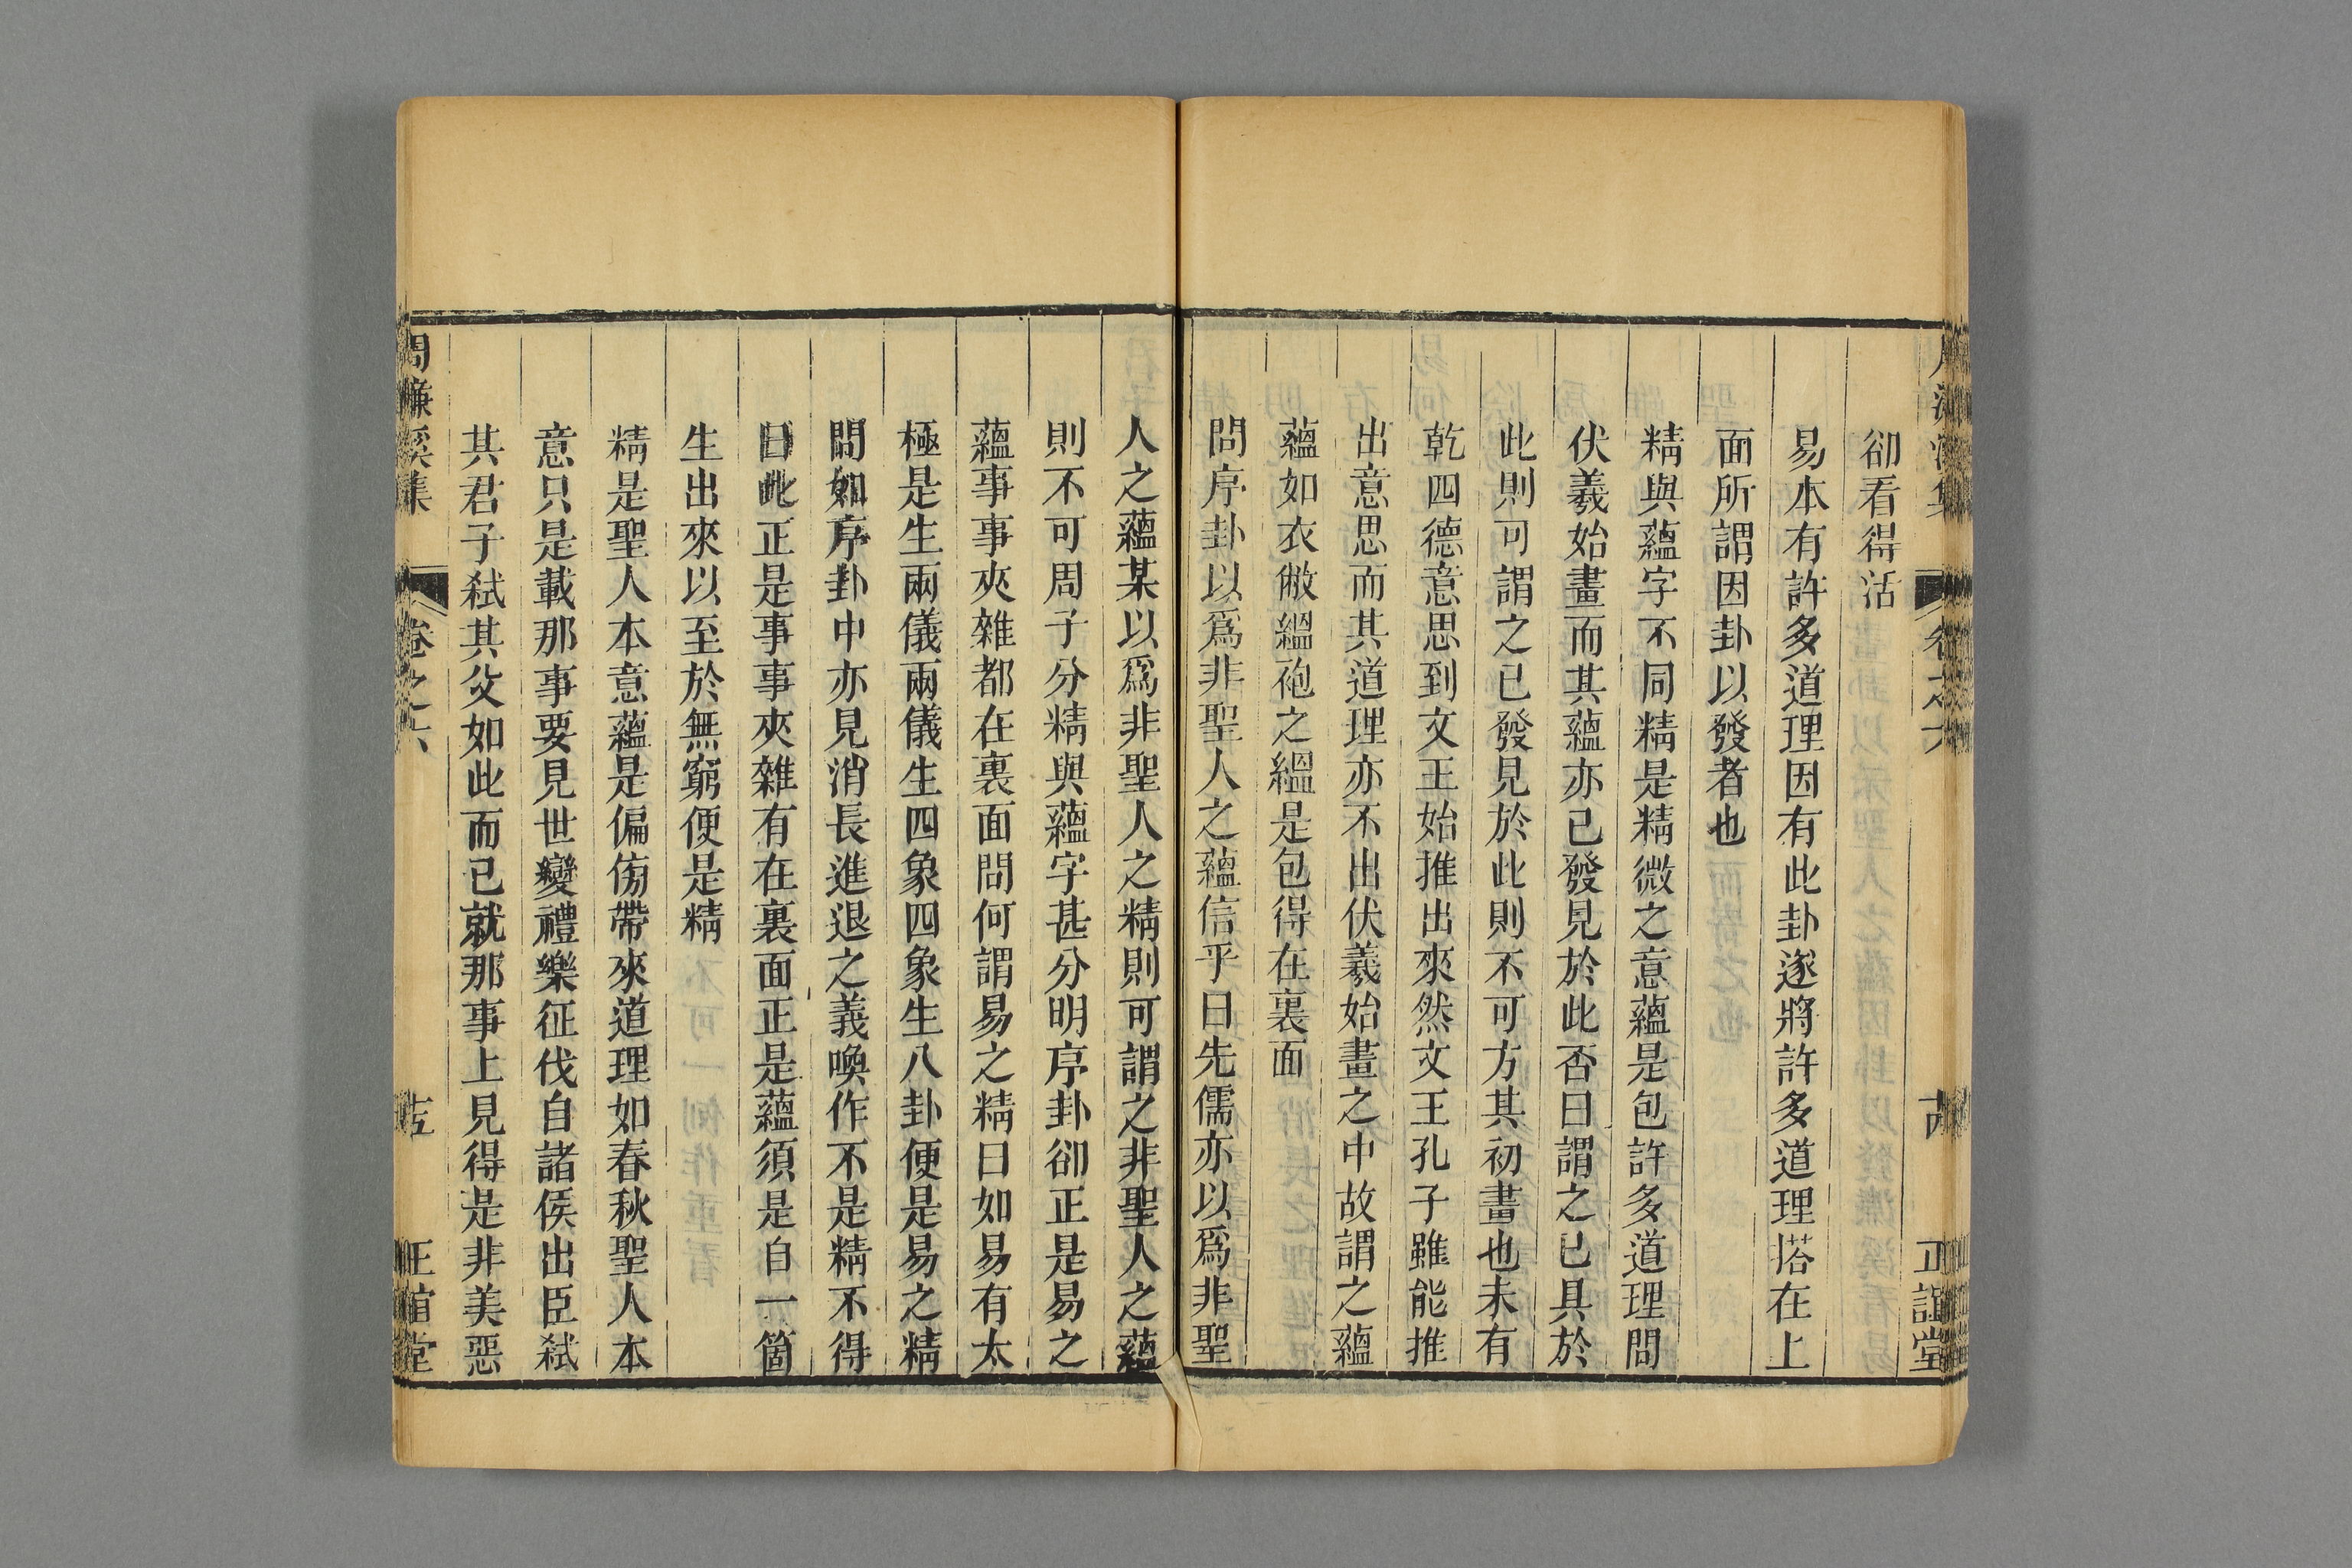 卻看得活
易本有許多道理因有此卦遂將許多道理搭在上
面所謂因卦以發者也
精與蘊字不同精是精微之意蘊是包許多道理問
伏羲始畫而其蘊亦已發見於此否曰謂之已具於
此則可謂之已發見於此則不可方其初畫也未有
乾四德意思到文王始推出來然文王孔子雖能推
出意思而其道理亦不出伏羲始畫之中故謂之蘊
蘊如衣敝縕袍之縕是包得在裏面
問序卦以爲非聖人之蘊信乎曰先儒亦以爲非聖
人之蘊某以爲非聖人之精則可謂之非聖人之蘊
則不可周子分精與蘊字甚分明序卦卻正是易之
蘊事事夾雜都在裏面問何謂易之精曰如易有太
極是生兩儀兩儀生四象四象生八卦便是易之精
問如序卦中亦見消長進退之義喚作不是精不得
曰此正是事事夾雜有在裏面正是蘊須是自一箇
生出來以至於無窮便是精
精是聖人本意蘊是偏傍帶來道理如春秋聖人本
意只是載那事要見世變禮樂征伐自諸侯出臣弒
其君子弒其父如此而已就那事上見得是非美惡
周濂溪集
卷之六
正誼堂